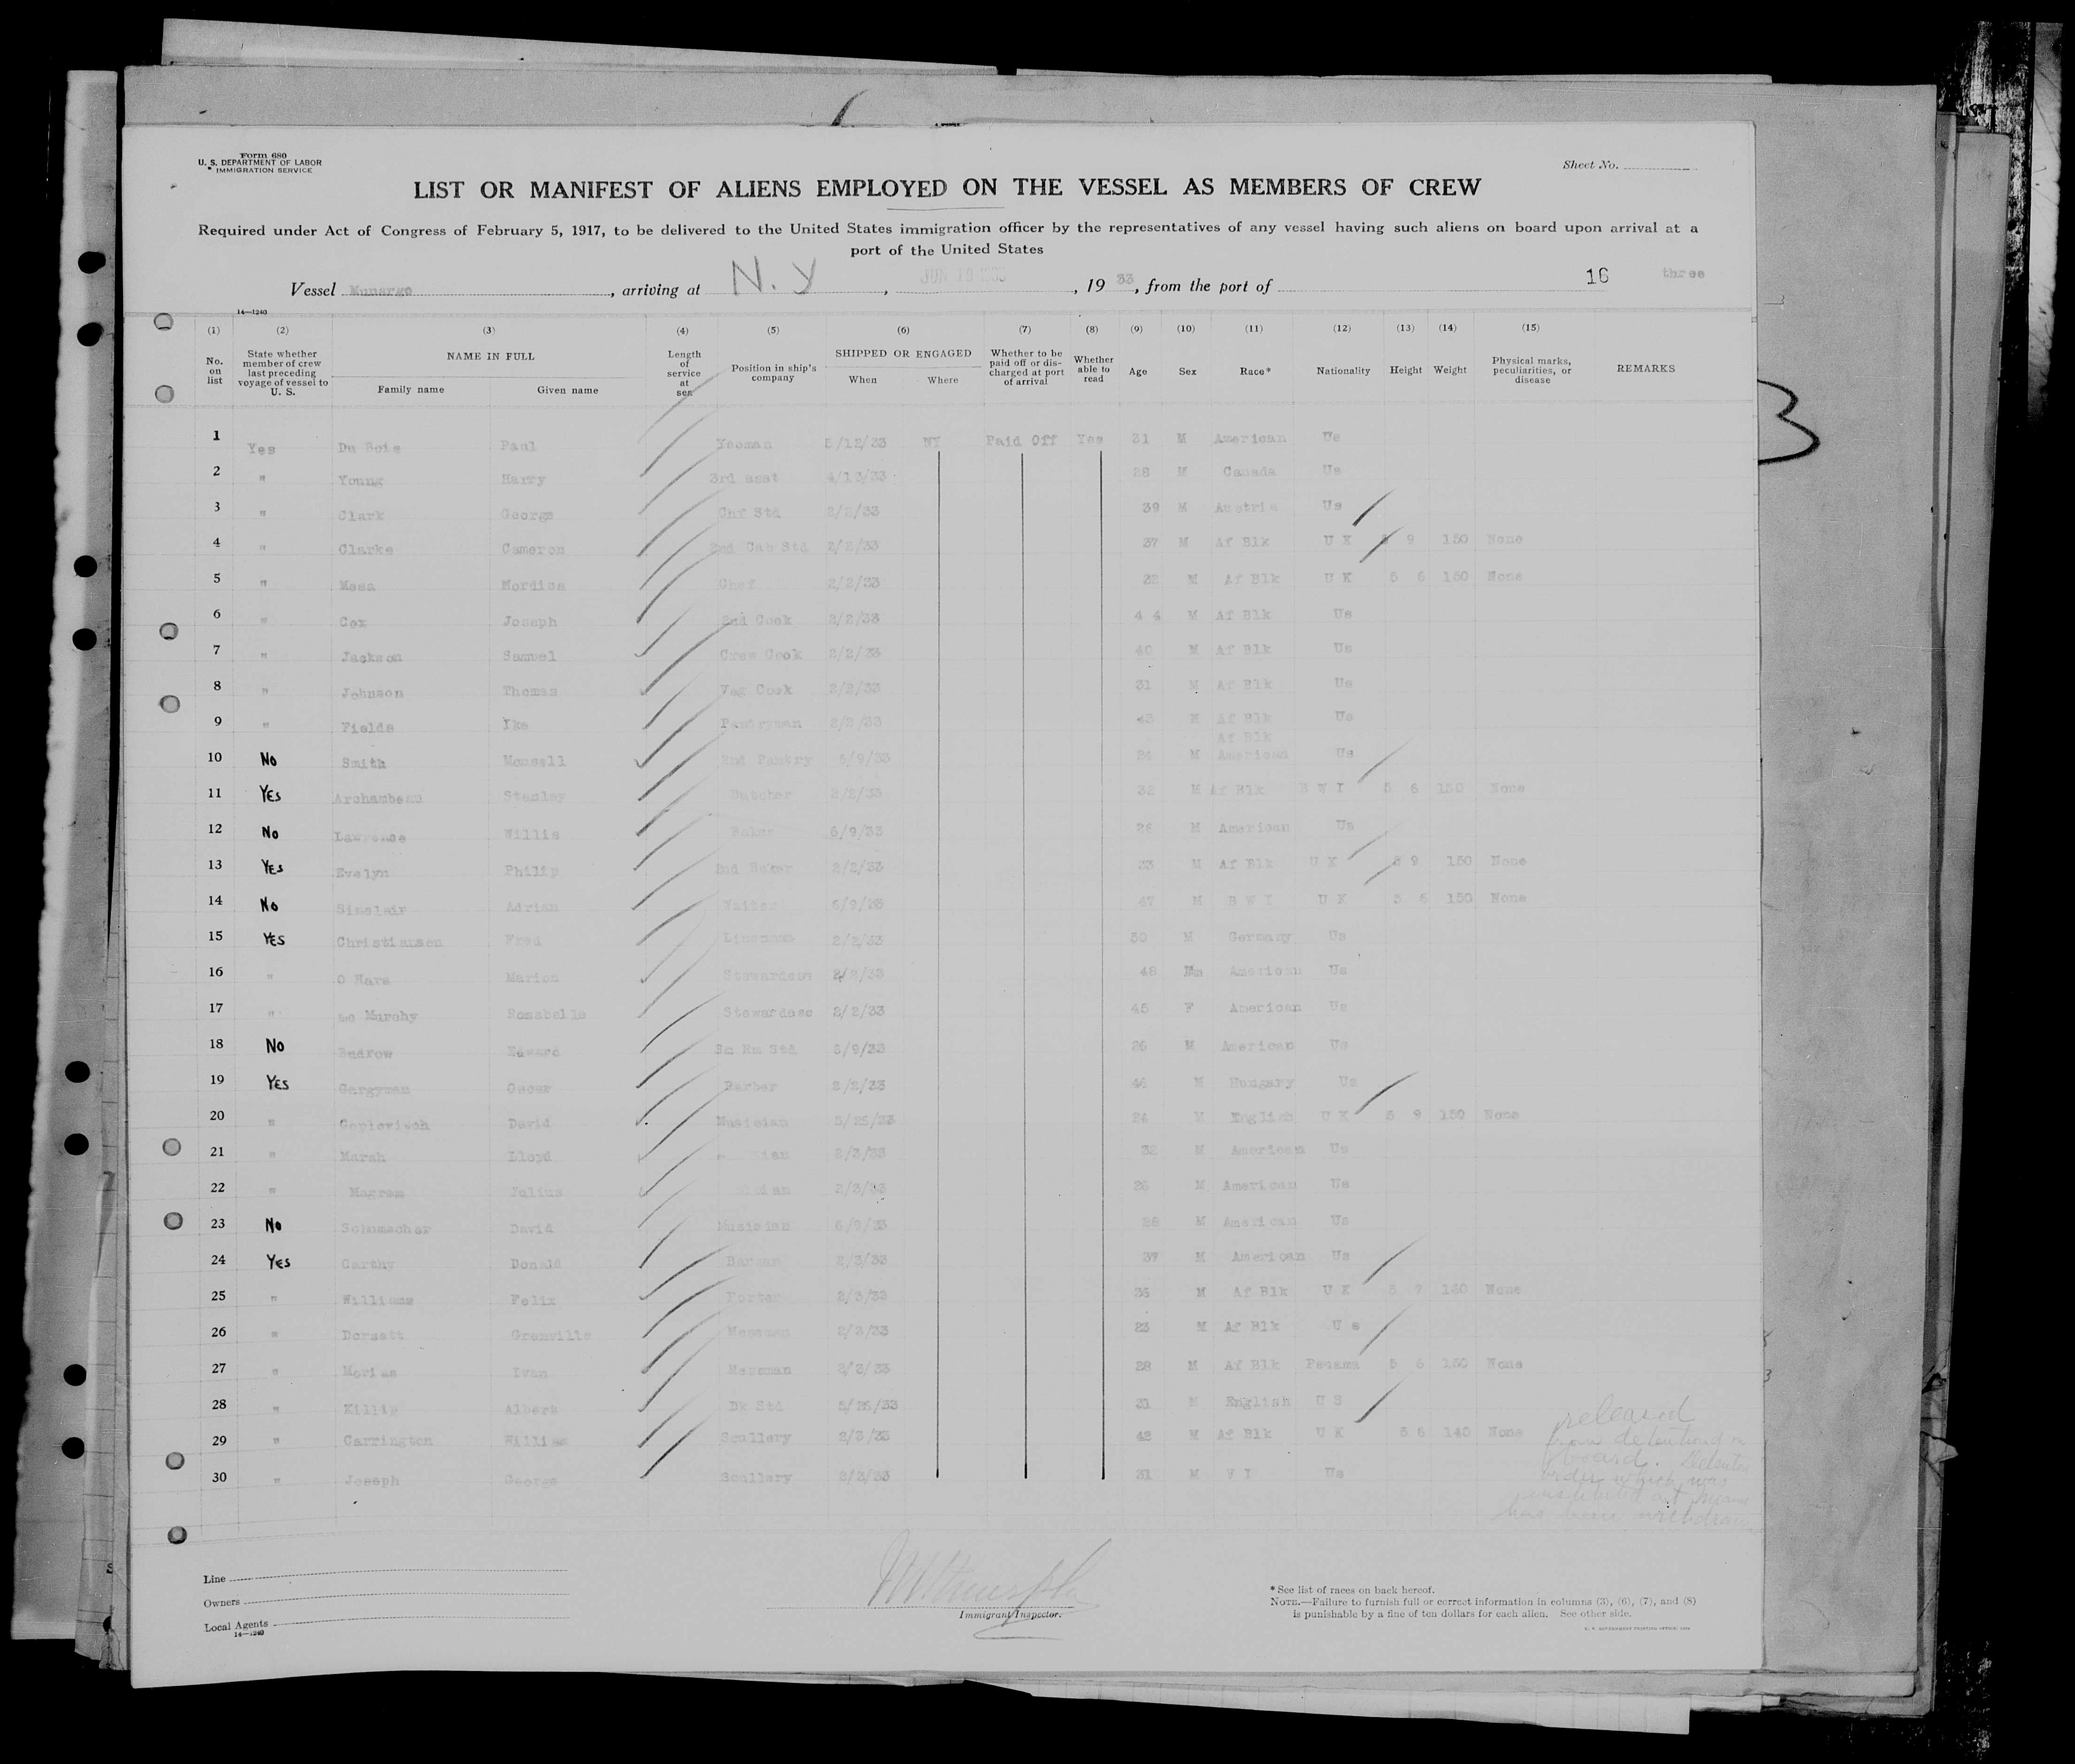 Form 680
U. S. DEPARTMENT OF LABOR
IMMIGRATION SERVICE
Sheet No.
LIST OR MANIFEST OF ALIENS EMPLOYED ON THE VESSEL AS MEMBERS OF CREW
Required under Act of Congress of February 5, 1917, to be delivered to the United States immigration officer by the representatives of any vessel having such aliens on board upon arrival at a
port of the United States
Vessel Munargo, arriving at N. Y, JUN 19 1933, 1933, from the port of 16 three
14—1240
(1) (2) (3) (4) (5) (6) (7) (8) (9) (10) (11) (12) (13) (14) (15)
No. on list State whether member of crew last preceding voyage of vessel to U. S. NAME IN FULL Family name Given name Length of service at sea Position in ship's company SHIPPED OR ENGAGED When Where Whether to be paid off or discharged at port of arrival Whether able to read Age Sex Race* Nationality Height Weight Physical marks, peculiarities, or disease REMARKS
1 Yes Du Bois Paul Yeoman 5/12/33 NY Paid Off Yes 31 M American Us
2 " Young Harry 3rd asst 4/13/33 28 M Canada Us
3 " Clark George Chf Std 2/2/33 39 M Austria Us
4 " Clarke Cameron 2nd Cab Std 2/2/33 37 M Af Blk U K 9 150 None
5 " Mesa Mordica Chef 2/2/33 22 M Af Blk U K 5 6 150 None
6 " Cox Joseph 2nd Cook 2/2/33 4 4 M Af Blk Us
7 " Jackson Samuel Crew Cook 2/2/33 40 M Af Blk Us
8 " Johnson Thomas Veg Cook 2/2/33 31 M Af Blk Us
9 " Fields Ike Pantryman 2/2/33 43 M Af Blk Us
Af Blk
10 No Smith Monsell 2nd Pantry 6/9/33 24 M American Us
11 YES Archambeau Stanley Butcher 2/2/33 32 M Af Blk B W I 5 6 150 None
12 No Lawrence Willis Baker 6/9/33 26 M American Us
13 YES Evelyn Philip 2nd Baker 2/2/33 33 M Af Blk U K 5 9 150 None
14 No Sinclair Adrian Waiter 6/9/33 47 M B W I U K 5 6 150 None
15 YES Christiansen Fred Linenman 2/2/33 50 M Germany Us
16 " O Hara Marion Stewardess 2/2/33 48 American Us
17 " Mc Murphy Rosabelle Stewardess 2/2/33 45 F American Us
18 No Budrow Edward Sm Rm Std 6/9/33 26 M American Us
19 YES Gergyman Oscar Barber 2/2/33 46 M Hungary Us
20 " David Musician 5/25/33 24 M English U K 5 9 150 None
21 " Marsh Lloyd 2/3/33 32 M American Us
22 " Magram Julius 2/3/33 26 M American Us
23 No Schumacher David Musician 6/9/33 28 M American Us
24 YES Carthy Donald Barman 2/3/33 37 M American Us
25 " Williams Felix Porter 2/3/33 35 M Af Blk U K 5 7 160 None
26 " Dorsett Granville Messman 2/3/33 23 M Af Blk U s
27 " Ivan Messman 2/3/33 28 M Af Blk Panama 5 6 150 None
28 " Killip Albert Dk Std 5/26/33 31 M English U S
29 " Carrington William Scullery 2/3/33 42 M Af Blk U K 5 6 140 None
30 " Joseph George Scullery 2/3/33 31 M W I Us
released
from detention on
board. Detention
order which was
instituted at Miami
has been withdrawn
Line
Owners
Local Agents
14—1240
Immigrant Inspector.
* See list of races on back hereof.
NOTE.—Failure to furnish full or correct information in columns (3), (6), (7), and (8)
is punishable by a fine of ten dollars for each alien. See other side.
3